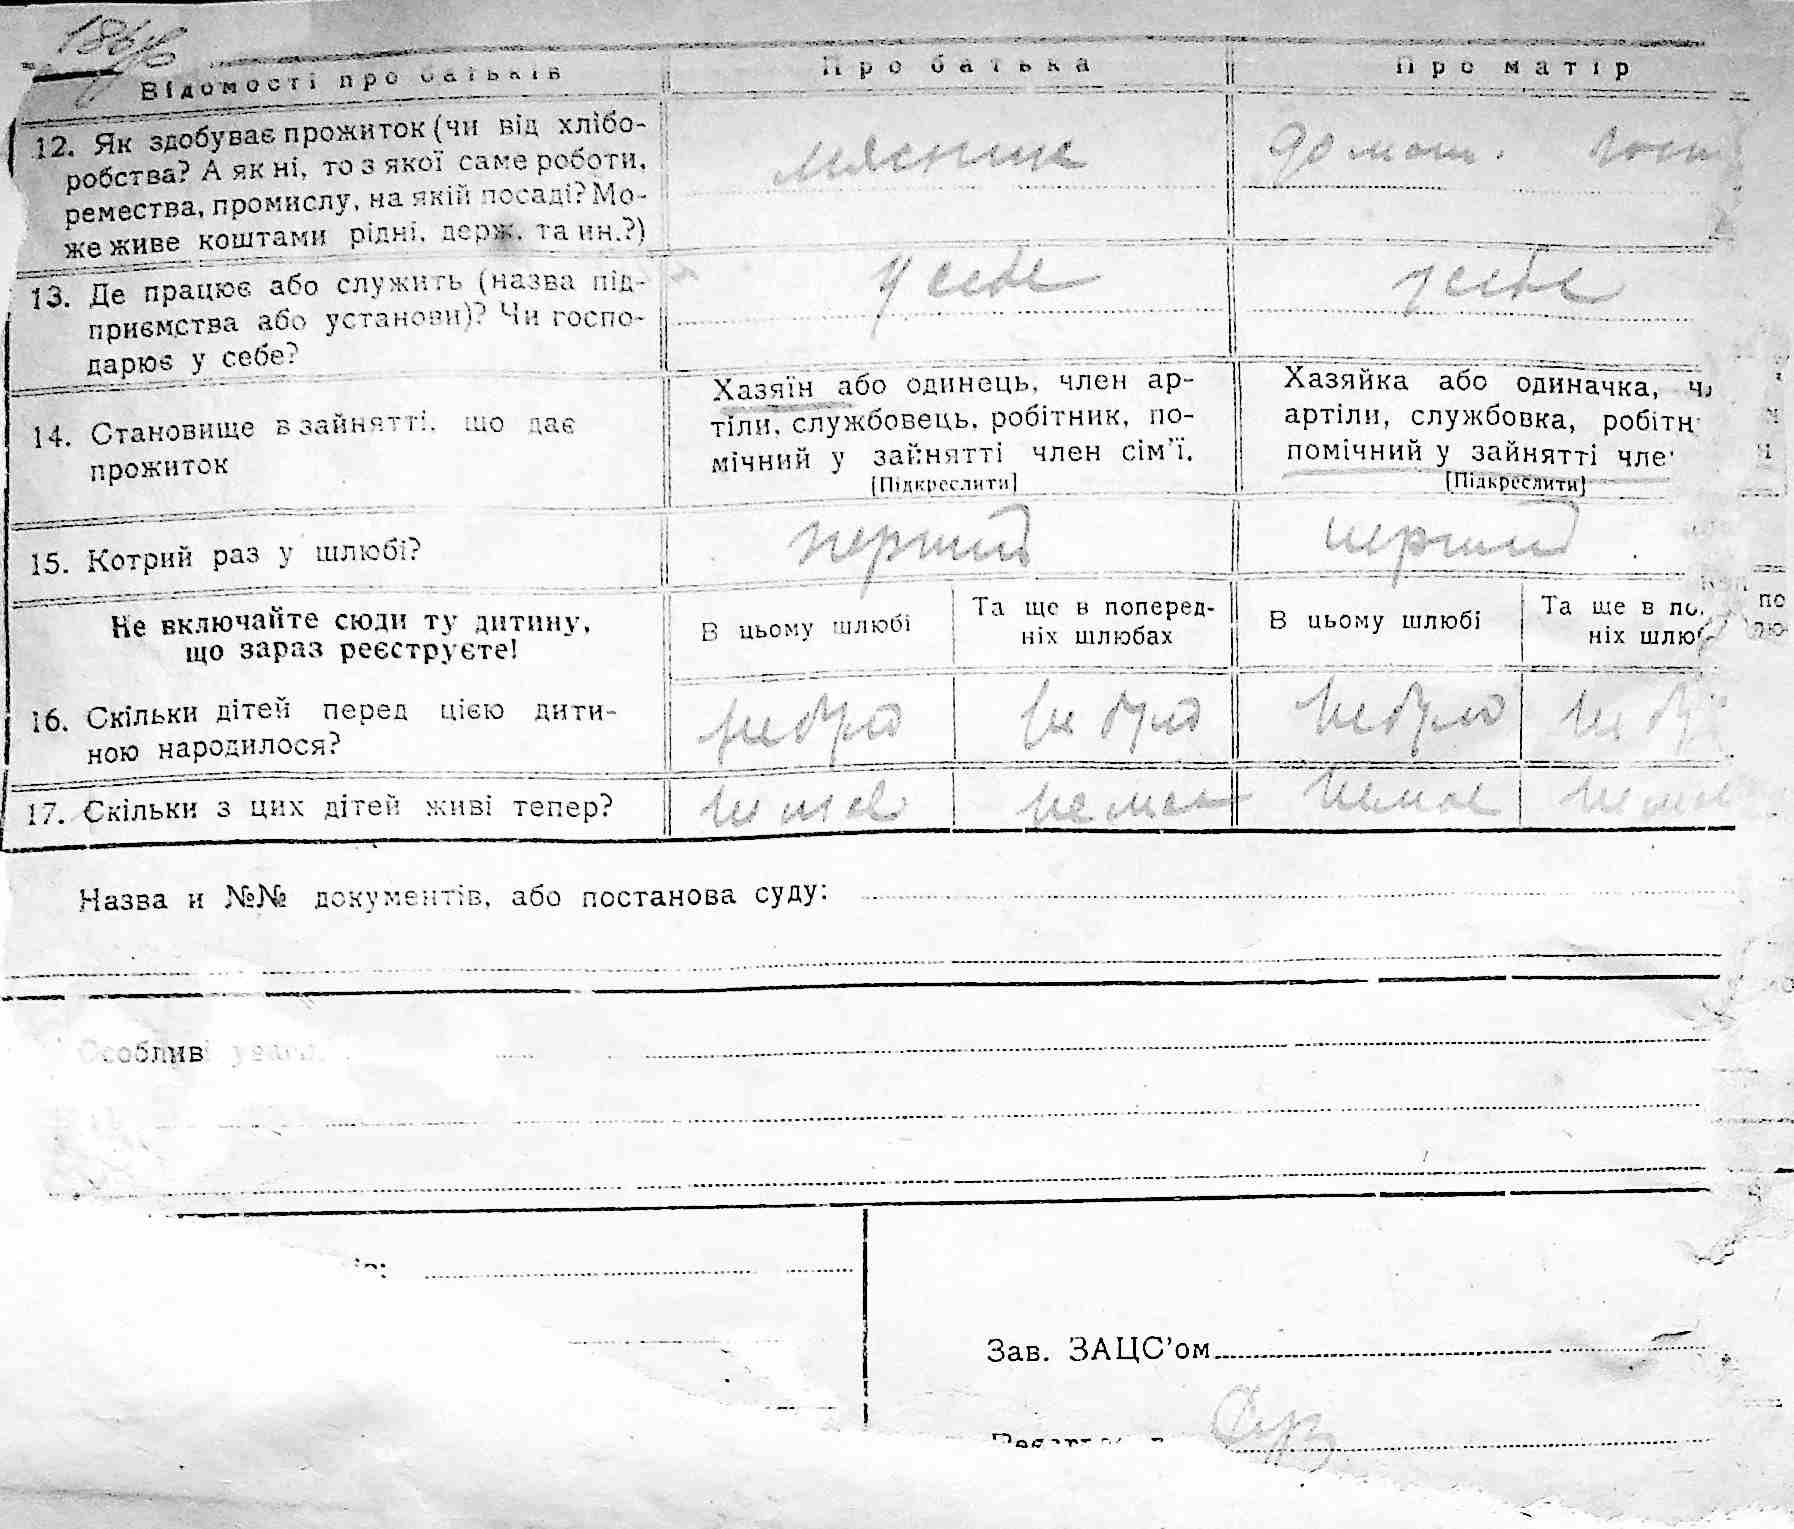 Відомості про батьків
Про батька
Про матір
12. Як здобуває прожиток (чи від хлібо-
робства? А як ні, то з якої саме роботи,
ремества, промислу, на якій посаді? Мо-
же живе коштами рідні, держ. та ин.?)
домаш.
13. Де працює або служить (назва під-
приємства або установи)? Чи госпо-
дарює у себе?
у себе
у себе
14. Становище в зайнятті, що дає
прожиток
Хазяїн або одинець, член ар-
тіли, службовець, робітник, по-
мічний у зайнятті член сім'ї.
[Підкреслити]
Хазяйка або одиначка,
артіли, службовка, робітн
помічний у зайнятті чле
[Підкреслити]
15. Котрий раз у шлюбі?
перший
перший
Не включайте сюди ту дитину,
що зараз реєструєте!
В цьому шлюбі
Та ще в поперед-
ніх шлюбах
В цьому шлюбі
Та ще в по
ніх шлюб
16. Скільки дітей перед цією дити-
ною народилося?
не було
не було
не було
не бу
17. Скільки з цих дітей живі тепер?
немає
немає
немає
немає
Назва и №№ документів, або постанова суду:
Особливі уваги
Зав. ЗАЦС'ом